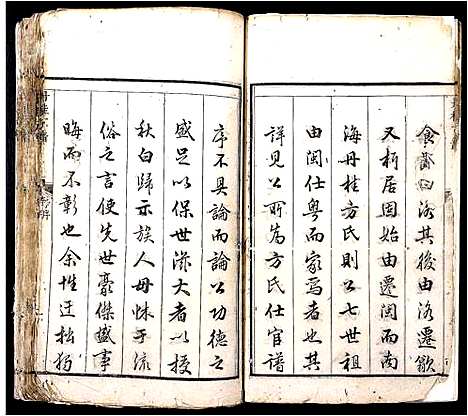 食菑曰洛其後由洛遷歙
又析居固始由遷閩而南
海丹桂方氏則公七世祖
由閩仕粤而家焉者也其
詳見公所為方氏仕官譜
序不具論而論公功德之
盛足以保世滋大者以授
秋白歸示族人毋怵于流
俗之言使先世豪傑盛事
晦而不彰也余性迂拙狷